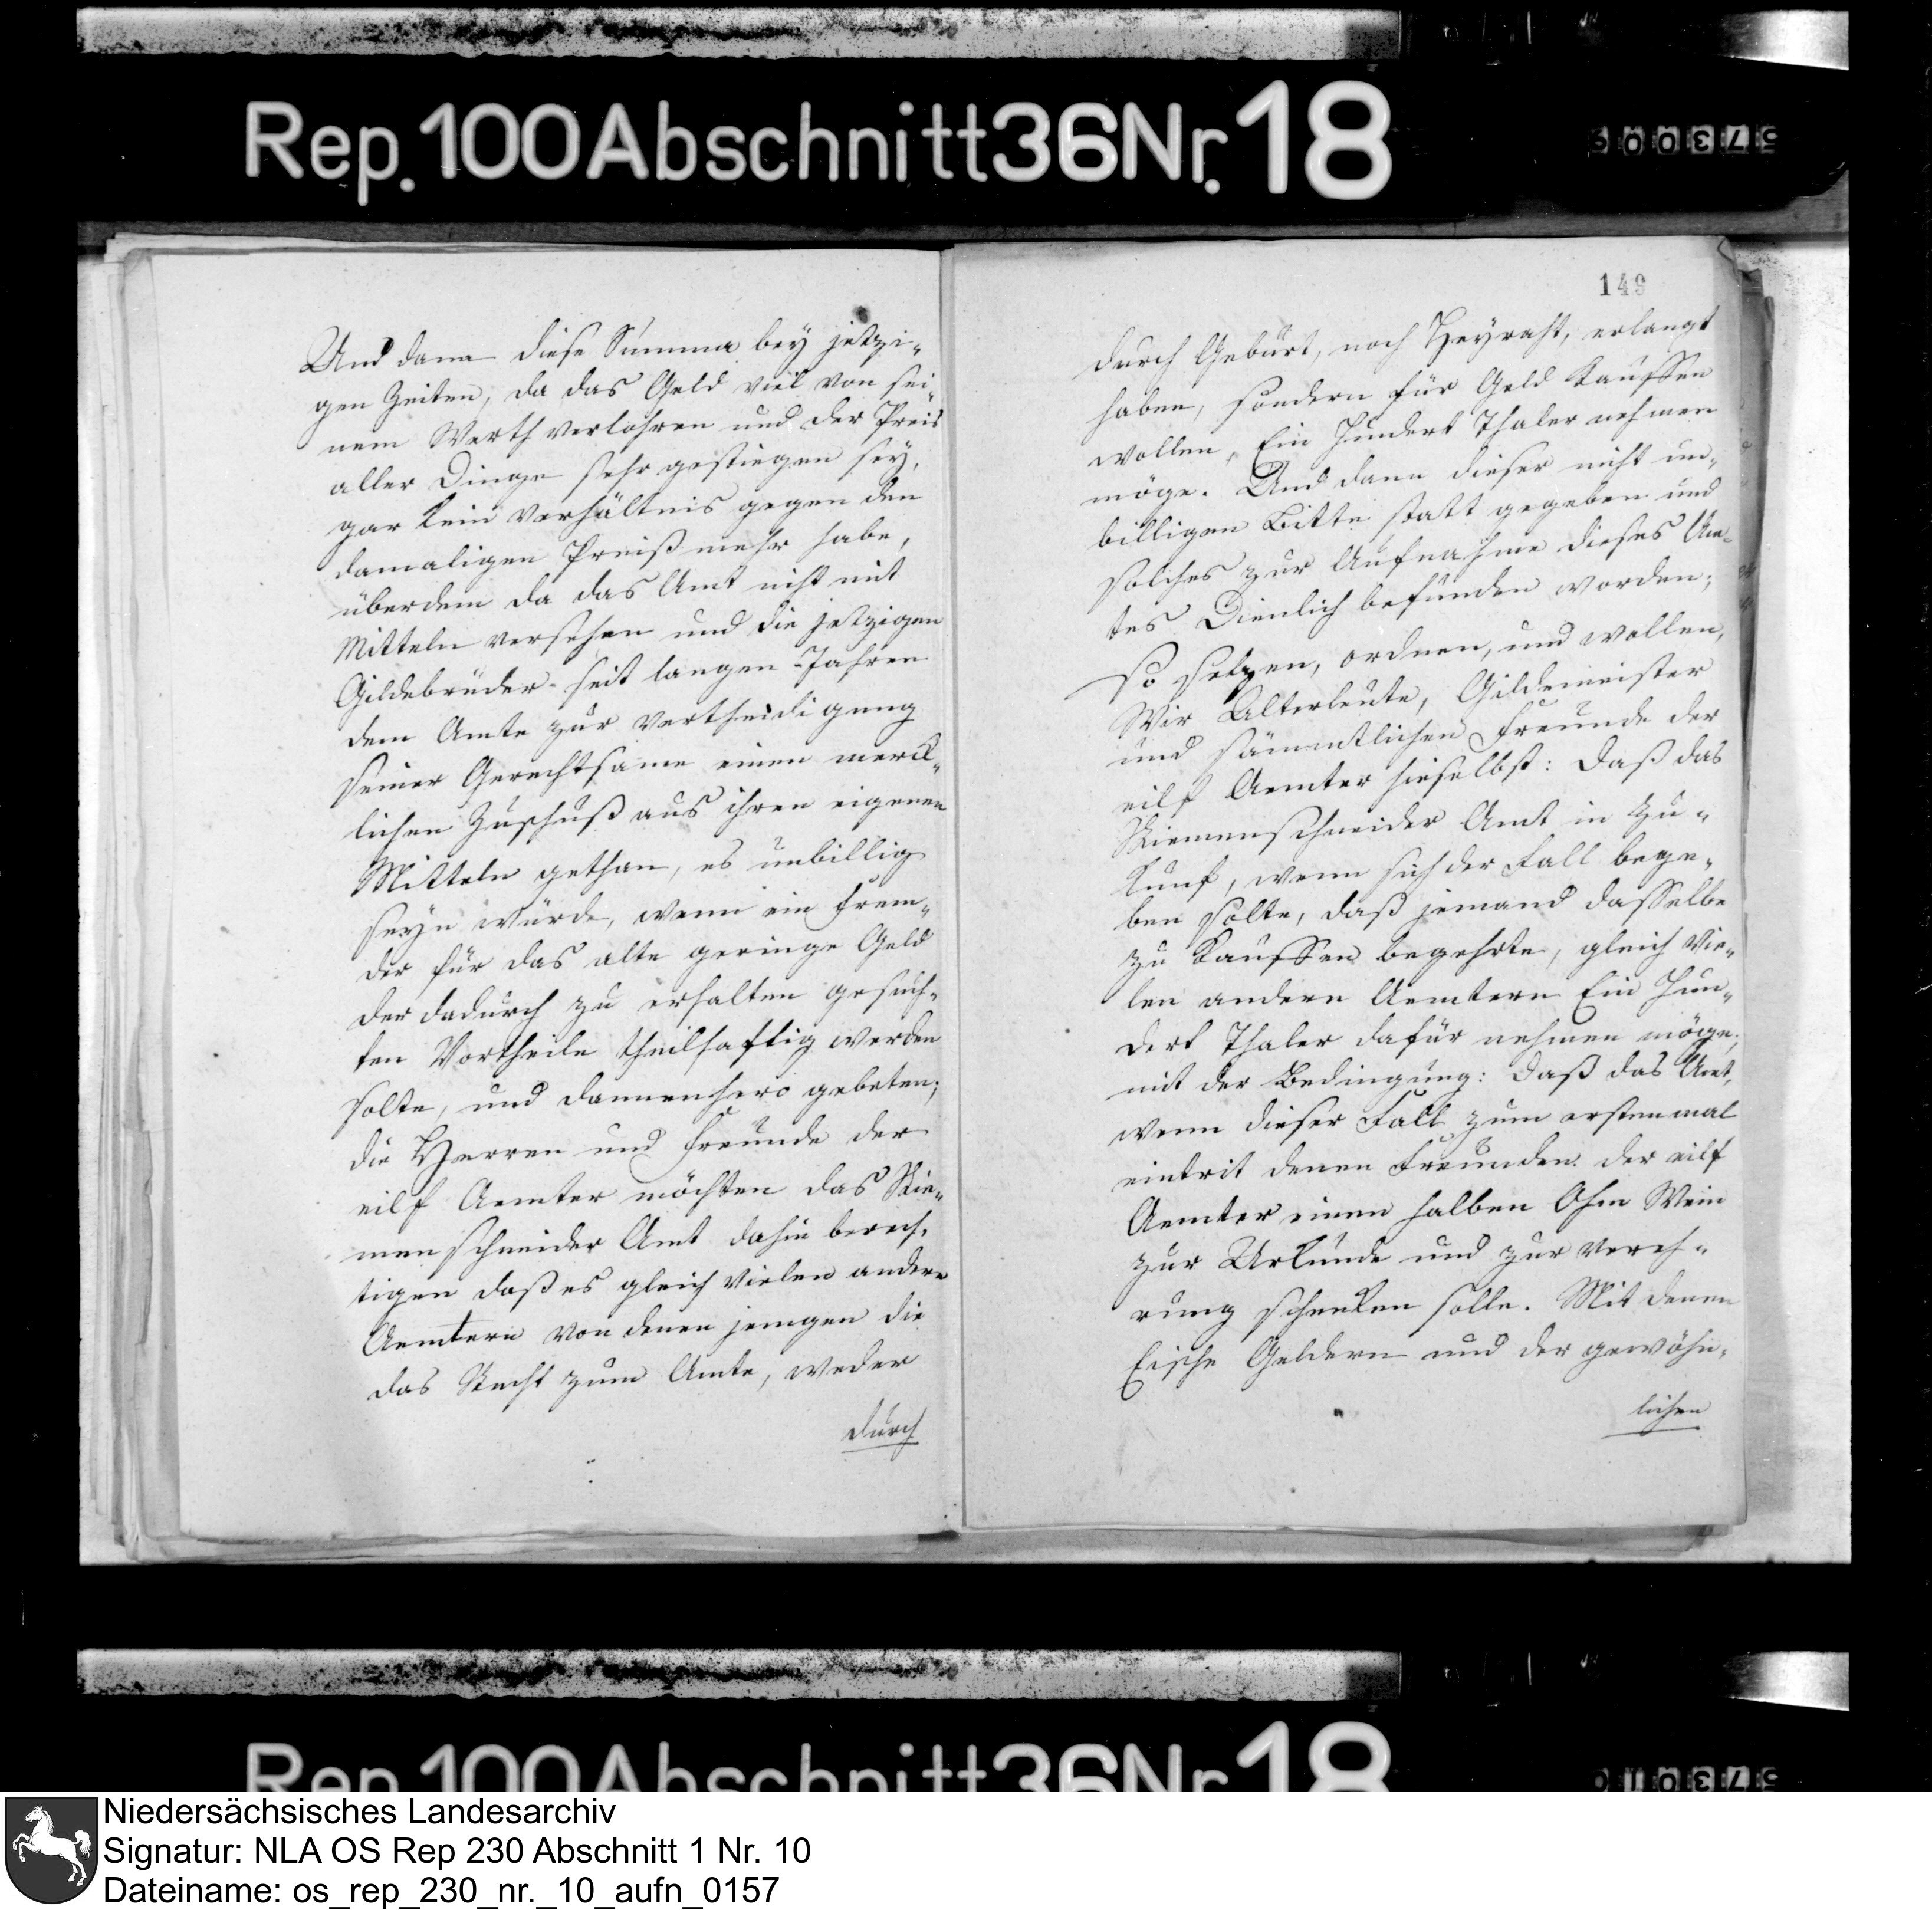 Rep. 100 Abschnitt 36 Nr. 18
573009
Und dann diese Summa bey jetzi-
gen Zeiten, da das Geld viel von sei-
nem Werth verlohren und der Preis
aller Dinge sehr gestiegen sey,
gar kein Verhältnis gegen den
damaligen Preiß mehr habe,
überdem da das Amt nicht mit
Mitteln versehen und die jetzigen
Gildebrüder seit langen Jahren
dem Amte zur Vertheidigung
seiner Gerechtsame einen merck-
lichen Zuschuß aus ihren eigenen
Mitteln gethan, es unbillig
seyn würde, wenn ein Frem-
der für das alte geringe Geld
der dadurch zu erhalten gesuch-
ten Vortheile theilhaftig werden
solte, und dannenhero gebeten;
die Herren und Freunde der
eilf Aemter möchten das Rie-
menschneider Amt dahin berech-
tigen daß es gleich vielen andern
Aemtern von denen jenigen die
das Recht zum Amte, weder
durch
149
durch Geburt, noch Heyraht, erlangt
haben, sondern für Geld kauffen
wollen, Ein Hundert Thaler nehmen
möge. Und dann dieser nicht un-
billigen Bitte statt gegeben und
solches zur Aufnahme dieses Am-
tes Dienlich befunden worden;
So setzen, ordnen, und wollen,
Wir Alterleute, Gildemeister
und sämmtlichen Freunde der
eilf Aemter hieselbst: Daß das
Riemenschneider Amt in Zu-
kunf, wenn sich der Fall bege-
ben solte, daß jemand dasselbe
zu kauffen begehrte, gleich vie-
len andern Aemtern Ein Hun-
dert Thaler dafür nehmen möge;
mit der Bedingung: Daß das Amt,
wenn dieser Fall zum erstenmal
eintrit denen Freunden der eilf
Aemter einen halben Ohm Wein
zur Urkunde und zur Vereh-
rung schenken solle. Mit denen
Eische Geldern und der gewöhn-
lichen
Rep. 100 Abschnitt 36 Nr. 18
573010
Niedersächsisches Landesarchiv
Signatur: NLA OS Rep 230 Abschnitt 1 Nr. 10
Dateiname: os_rep_230_nr._10_aufn_0157